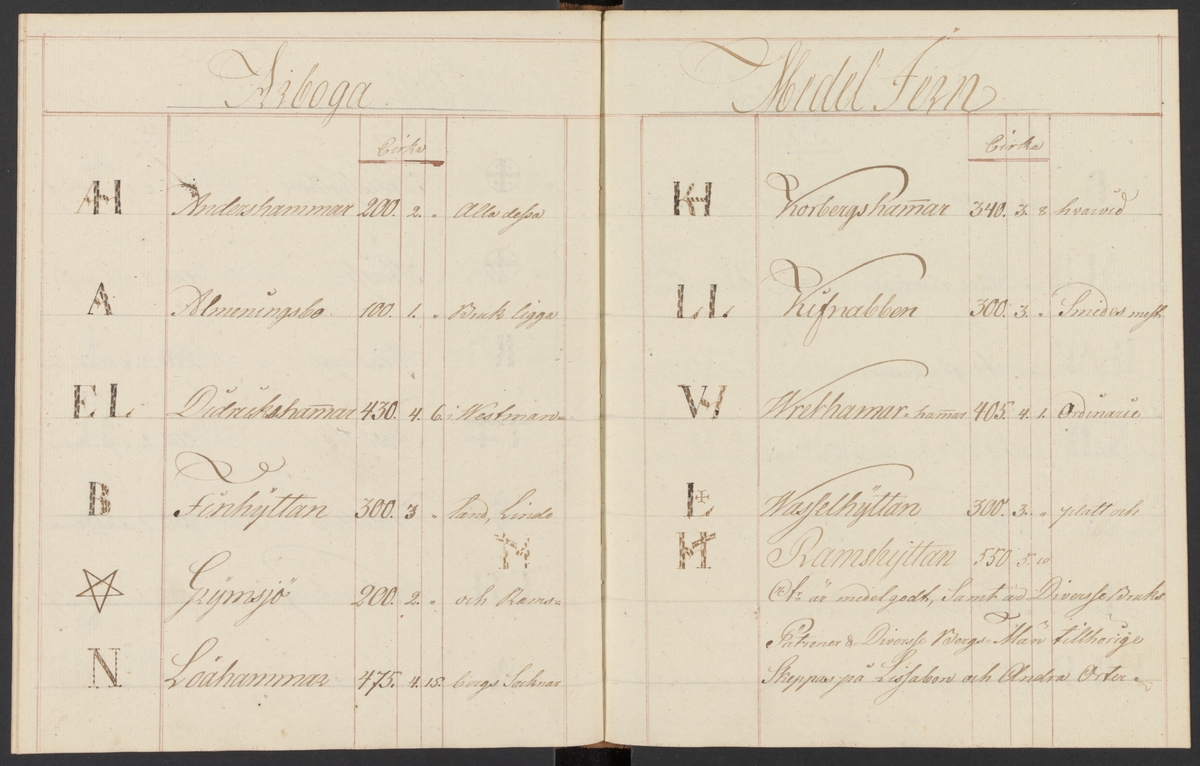 Arboga
Cirka
AH Andershammar 200. 2. " Alla dessa
A Almeningsbo 100. 1. " Bruk ligga
EL Didrickshamar 430. 4. 6. i Westman=
B Finhÿttan 300. 3 " land, Linde
Grÿmsjö 200. 2. " och Rams=
N Löahammar 475. 4. 15. bergs Socknar
Medel Jern
Cirka
KH Korbergshamar 340. 3. 8. hvarvid
LL Kifnabben 300. 3. " Smides mest
W Wrethamar=hamar 405. 4. 1. Ordinarie
E Wasselhÿttan 300. 3. " platt och
M Ramshÿttan 550 5. 10
är medelgodt, Samt ad Diversse Bruks
Patroner & Diversse Bergs Män tillhörige
Skeppas på Lissabon och Andra Orter